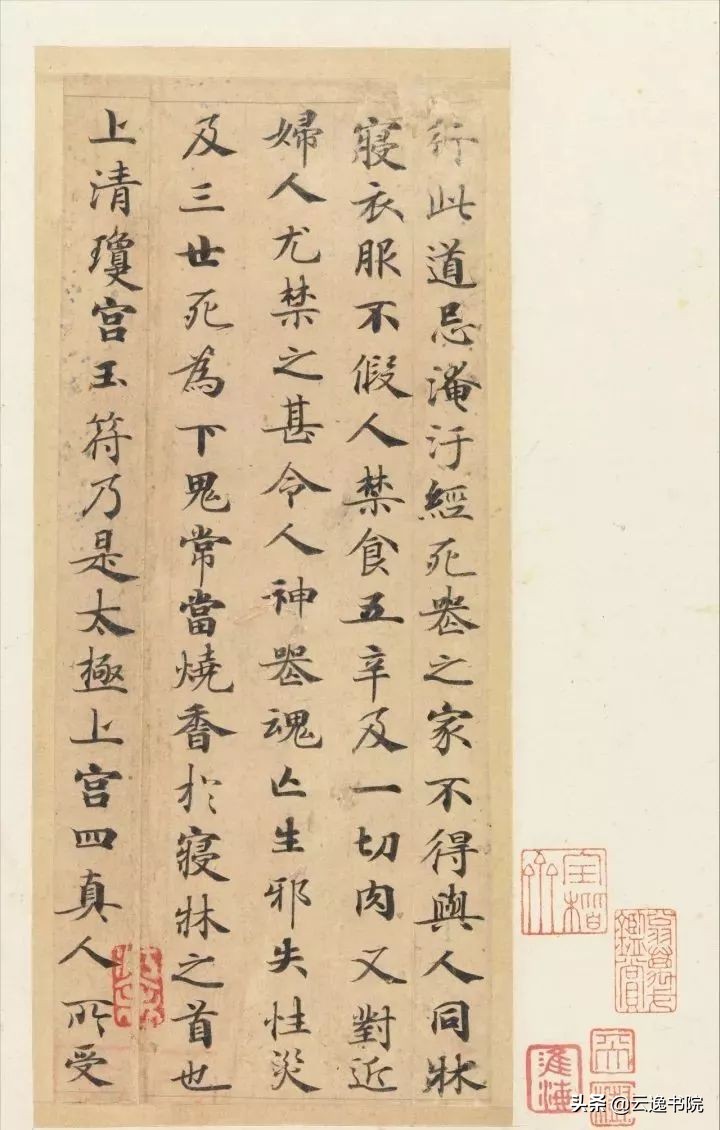 行此道忌淹汙經死喪之家不得與人同牀
寢衣服不假人禁食五辛及一切肉又對近
婦人尤禁之甚令人神喪魂亡生邪失性災
及三世死為下鬼常當燒香於寢牀之首也
上清瓊宮玉符乃是太極上宮四真人所受
頭条 @云逸书院